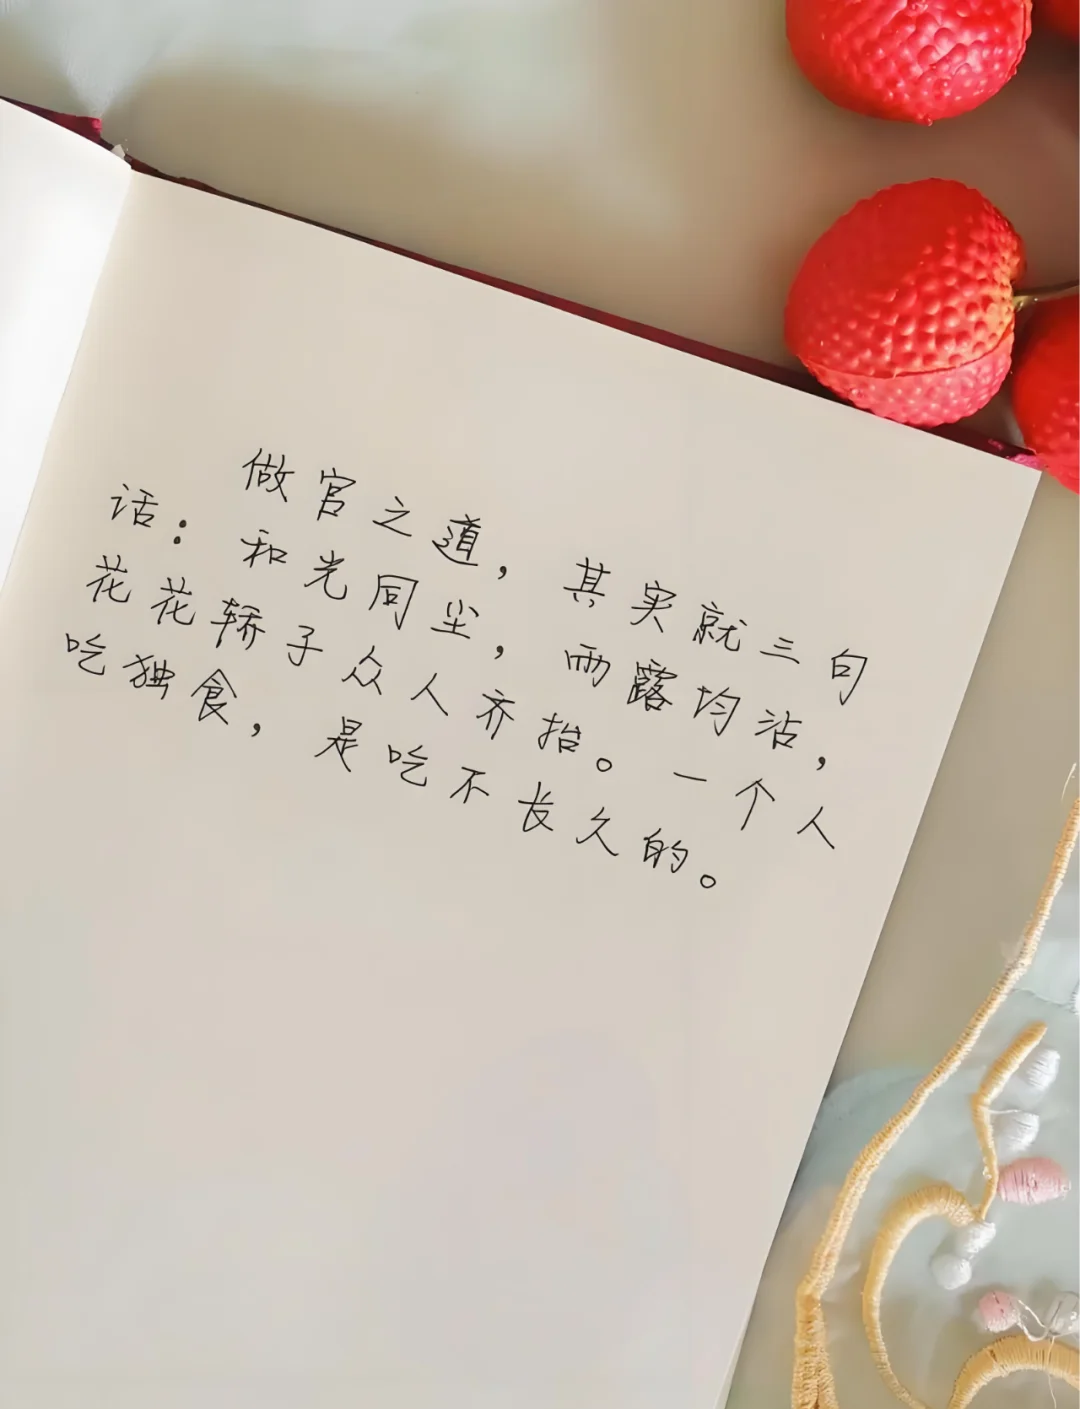 做官之道，其实就三句
话：和光同尘，雨露均沾，
花花轿子众人齐抬。一个人
吃独食，是吃不长久的。